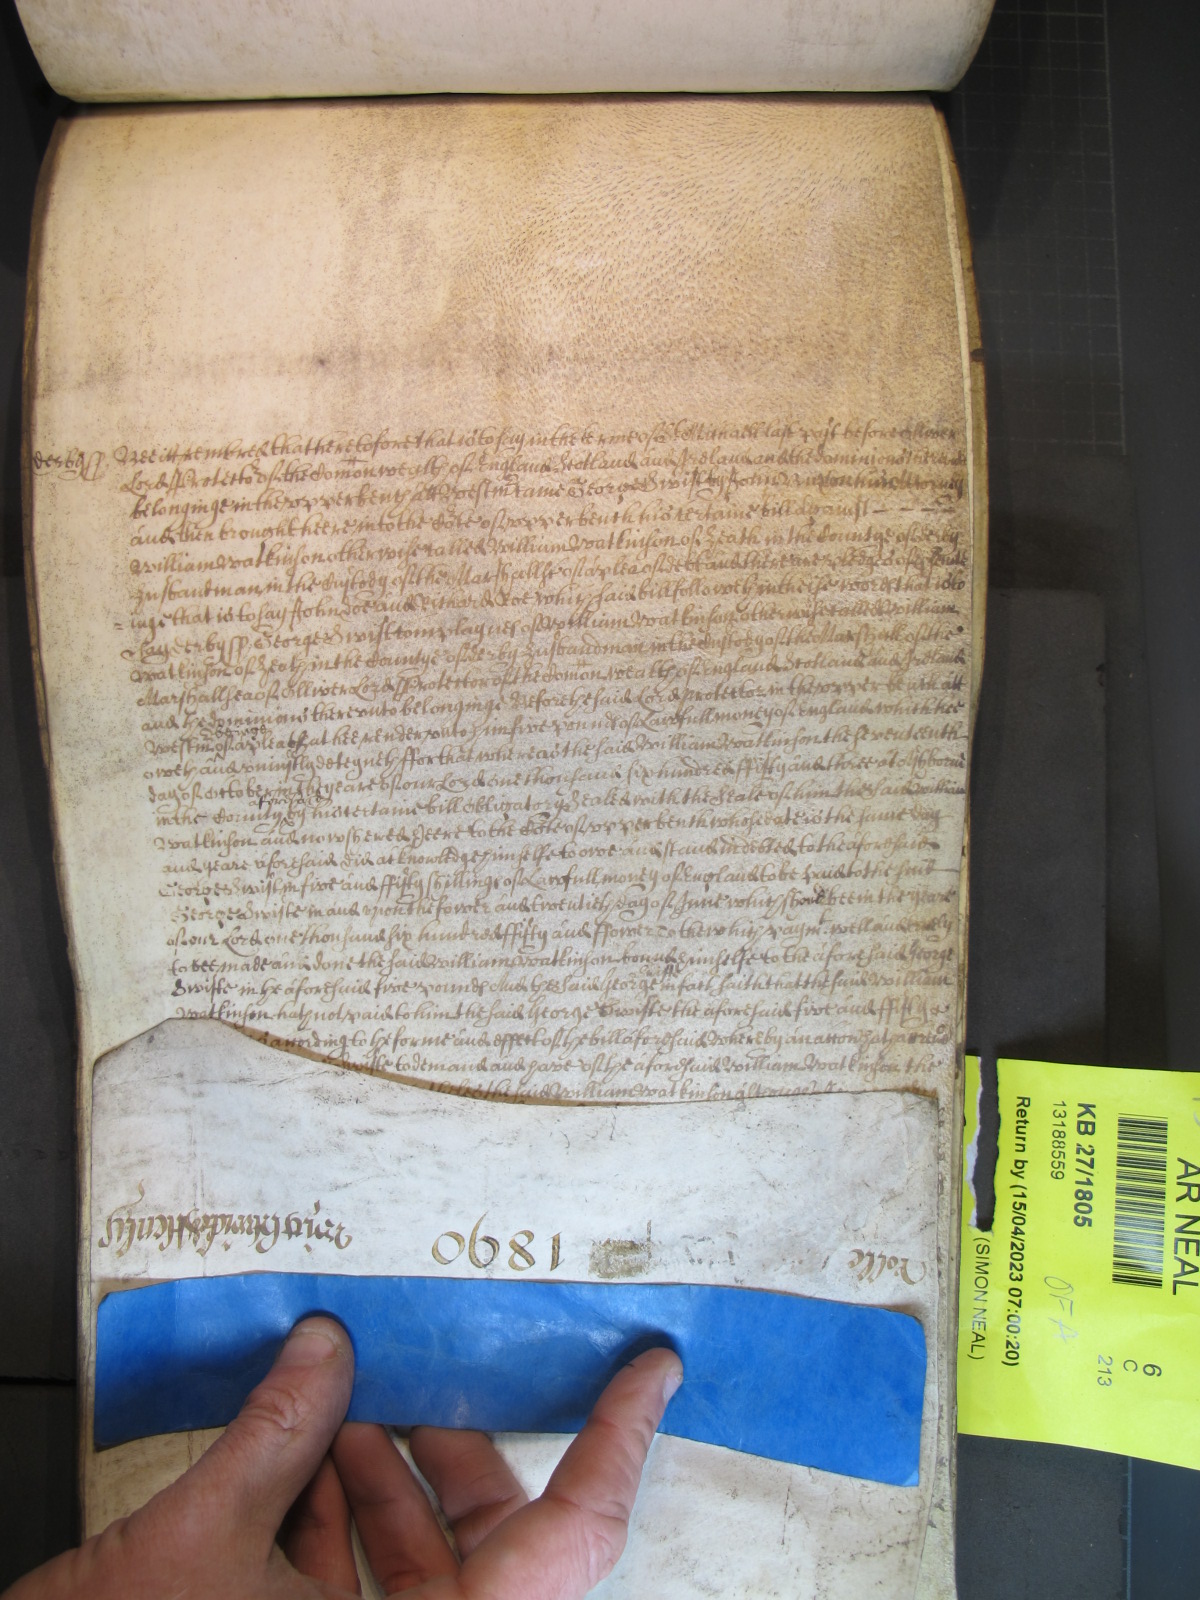 derby ss Bee itt remembred that heretofore that is to say in the terme of St Michaell last past before Oliver
Lord Protector of the Comonwealth of England Scotland and Ireland and the dominions thereunto
belonginge in the upper bench att Westmr came George Swift by John his Attorney
and then brought heere into the Cote of upper bench his certaine bill against
William Watkinson otherwise called William Watkinson of Heath in the Countye of derby
husbandman in the Custody of the Marshall &c of a plea of debt and there are pledges of
inge that is to say John Doe and Richard Roe which said bill followeth in theise words that is to
say derby ss George Swift complaynes of William Watkinson otherwise called William
Watkinson of Heath in the Countye of derby husbandman in the Custody of the Marshall of the
Marshallsea of Olliver Lord Protector of the Comonwealth of England Scotland and Ireland
and the dominions thereunto belonginge Before the said Lord Protector in the upper bench att
Westmr of a plea that hee render unto him five pounds of Lawfull money of England which hee
oweth and uniustly deteyneth for that whereas the said William Watkinson the seventeenth
day of October in the yeare of our Lord one thousand six hundred fifty and three at
in the County aforesaid by his certaine bill obligatory Sealed with the Seale of him the said William
Watkinson and now shewed heere to the Cote of upper bench whose date is the same day
and yeare aforesaid did acknowledge himselfe to owe and stand indebted to the aforesaid
George Swift in five and fifty shillings of Lawfull money of England to be paid to the said
George Swifte in and upon the fower and twentieth day of June which should bee in the yeare
of our Lord one thousand six hundred fifty and fower To the which paymt well and truely
to bee made and done the said William Watkinson bound himselfe to the aforesaid George
Swifte in the aforesaid five pounds And the said George Swifte in fact saith that the said William
Watkinson hath not paid to him the said George Swifte the aforesaid five and fifty
according to the forme and effect of the bill aforesaid whereby an accon hath accrued
Swifte to demand and have of the aforesaid William Watkinson the
the said William Watkinson although
Rolle
1890
AR NEAL
KB 27/1805
13188559
Return by (15/04/2023 07:00:20)
(SIMON NEAL)
6
C
213